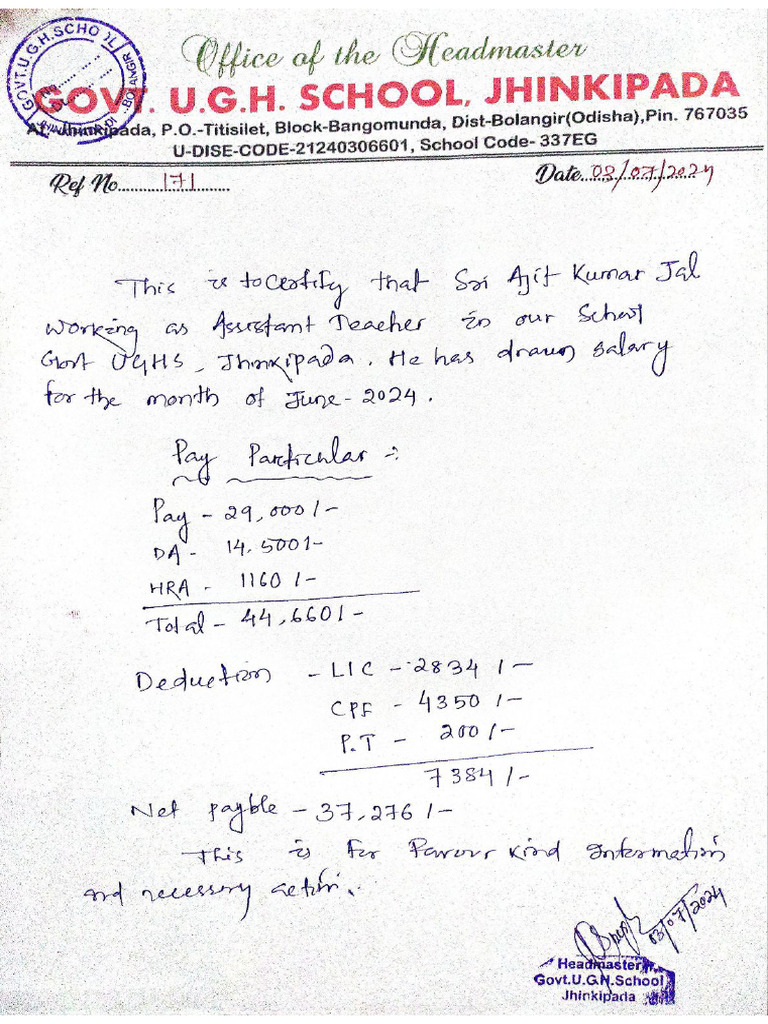 GOVT.U.G.H.SCHOOL
BOLANGIR
JHINKIPADA
Office of the Headmaster
GOVT. U.G.H. SCHOOL, JHINKIPADA
At-Jhinkipada, P.O.-Titisilet, Block-Bangomunda, Dist-Bolangir(Odisha),Pin. 767035
U-DISE-CODE-21240306601, School Code- 337EG
Ref No..........171.......... Date...03/07/2024
This is to certify that Sri Ajit Kumar Jal
working as Assistant Teacher in our School
Govt UGHS, Jhinkipada. He has drawn salary
for the month of June-2024.
Pay Particular :-
Pay - 29,000/-
DA - 14,500/-
HRA - 1160/-
Total - 44,660/-
Deduction - LIC - 2834/-
CPF - 4350/-
P.T - 200/-
7384/-
Net payble - 37,276/-
This is for Favour kind information
and necessary action.
03/07/2024
Headmaster
Govt.U.G.H.School
Jhinkipada